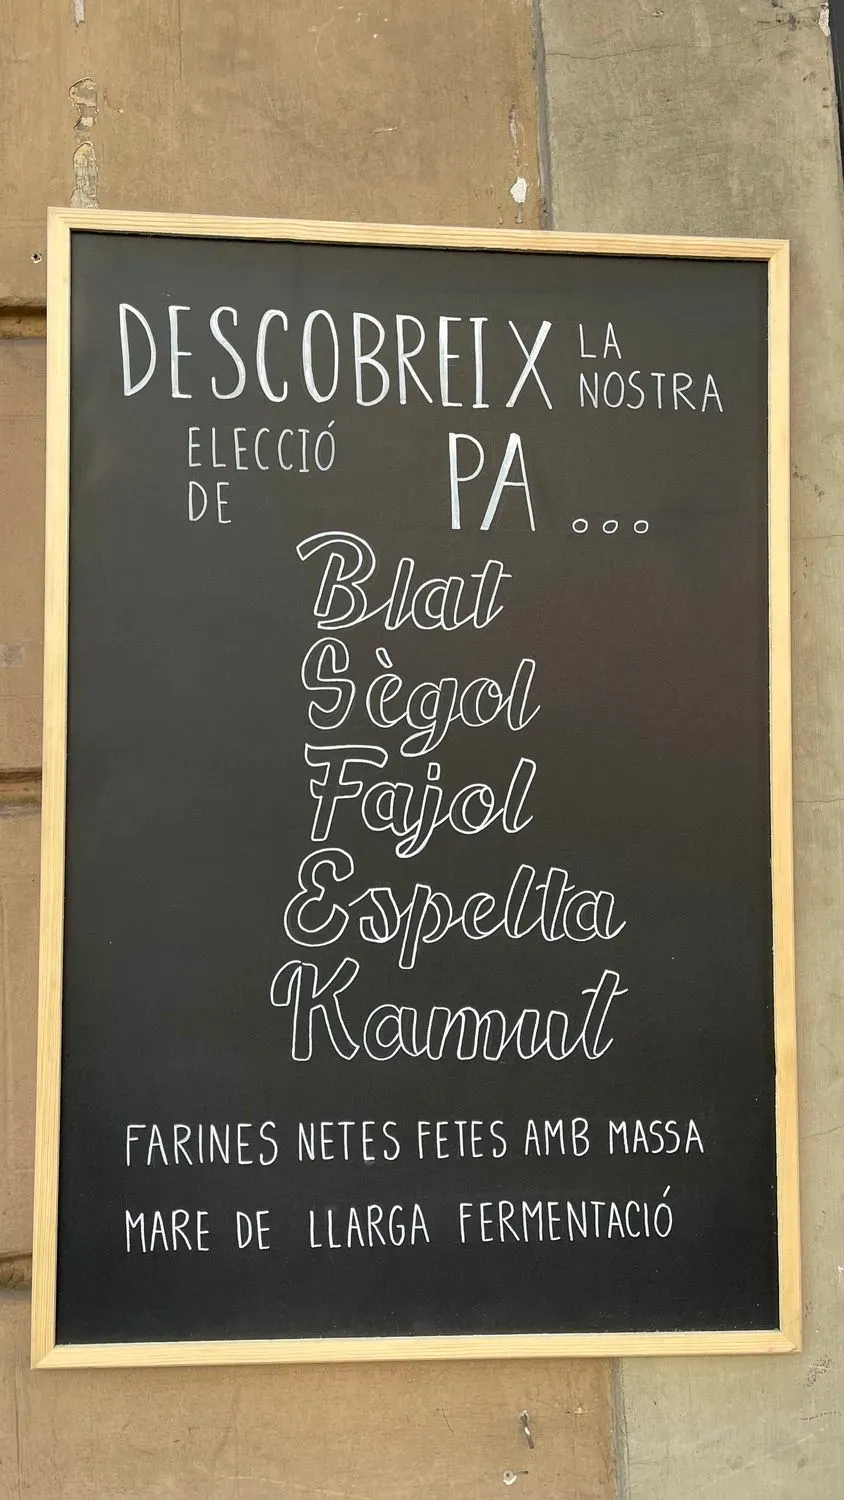 DESCOBREIX LA
NOSTRA
ELECCIÓ
DE PA ...
Blat
Sègol
Fajol
Espelta
Kamut
FARINES NETES FETES AMB MASSA
MARE DE LLARGA FERMENTACIÓ